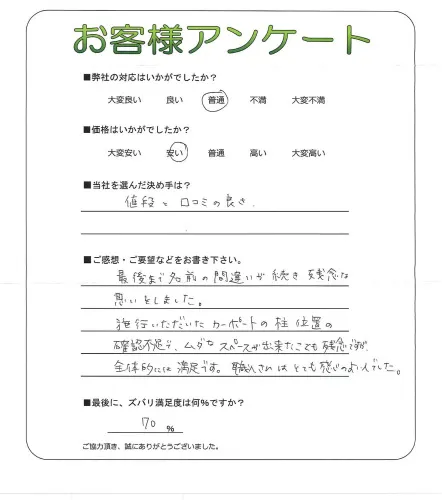 お客様アンケート
■弊社の対応はいかがでしたか？
大変良い 良い 普通 不満 大変不満
■価格はいかがでしたか？
大変安い 安い 普通 高い 大変高い
■当社を選んだ決め手は？
値段と口コミの良さ.
■ご感想・ご要望などをお書き下さい。
最後まで名前の間違いが続き残念な
思いをしました。
施行いただいたカーポートの柱位置の
確認不足で、ムダなスペースが出来たことも残念ですが、
全体的には満足です。職人さんはとても感じのよい人でした。
■最後に、ズバリ満足度は何%ですか？
70 %
ご協力頂き、誠にありがとうございました。